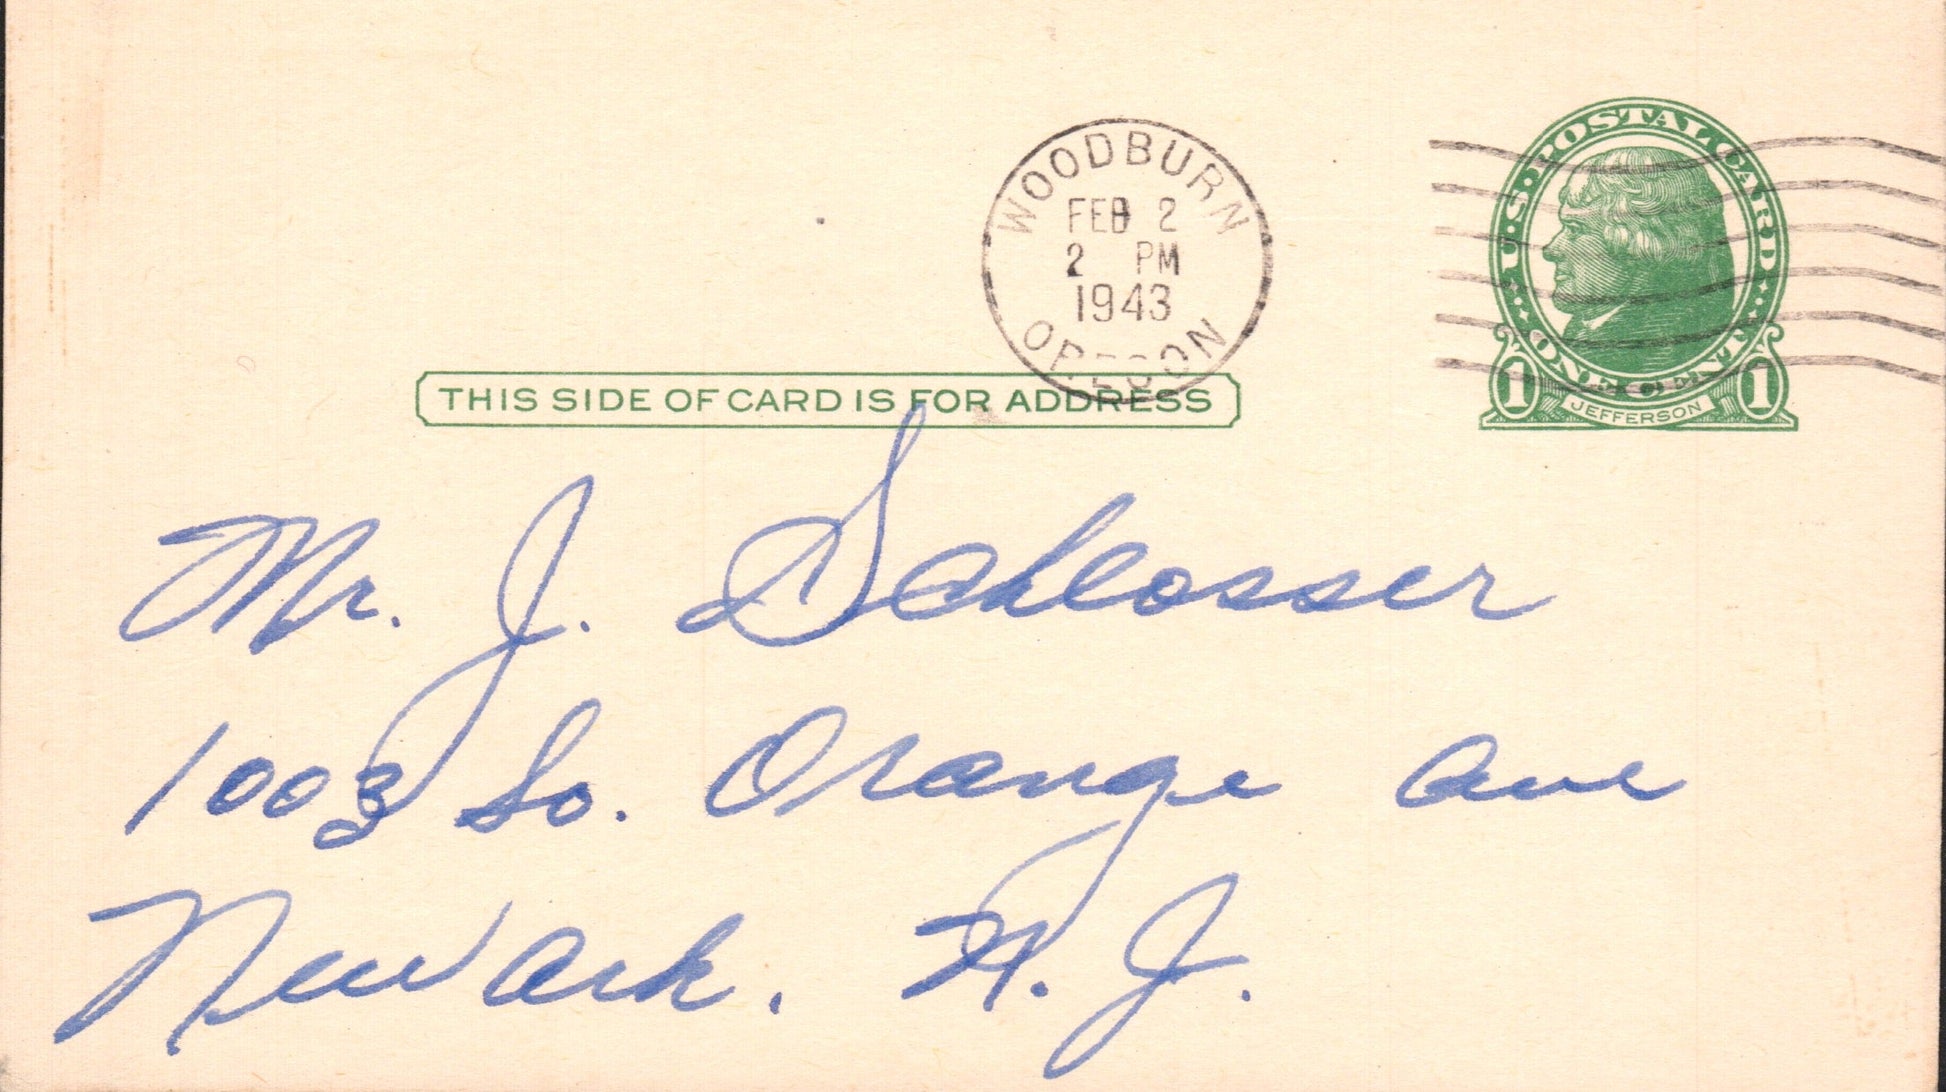 WOODBURN
FEB 2
2 PM
1943
OREGON
U.S. POSTAL CARD
ONE CENT
1 1
JEFFERSON
THIS SIDE OF CARD IS FOR ADDRESS
Mr. J. Schlosser
1003 So. Orange Ave
Newark, N. J.